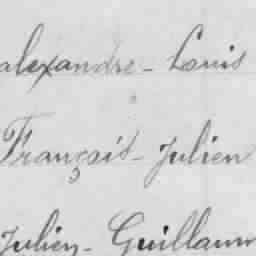 alexandre - Louis
François - Julien
Julien - Guillaum